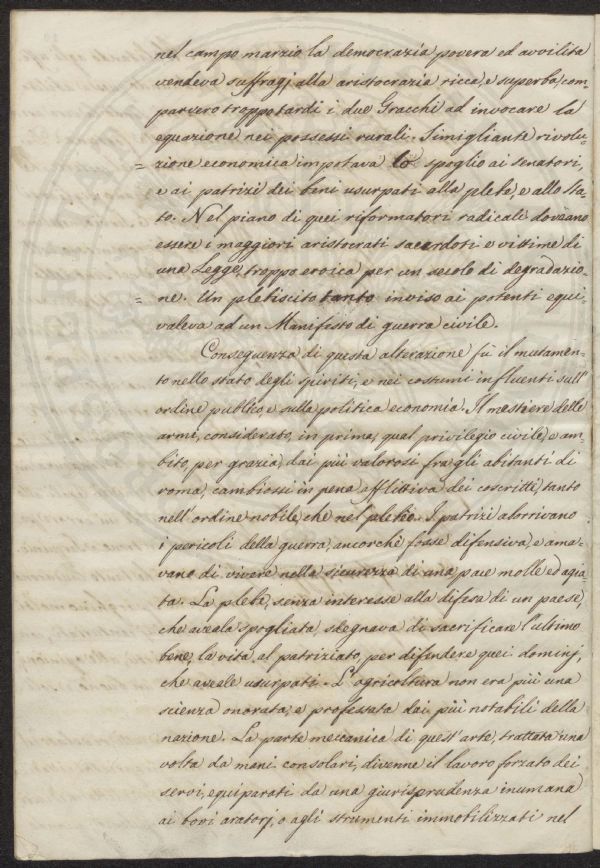 nel campo marzio la democrazia povera ed avvilita
vendeva suffragj alla aristocrazia ricca, e superba, com-
parvero troppo tardi i due Gracchi ad invocare la
equazione nei possessi rurali. Simigliante rivolu-
=zione economica importava lo spoglio ai senatori,
e ai patrizi dei beni usurpati alla plebe, e allo sta-
to. Nel piano di quei riformatori radicali doveano
essere i maggiori aristocrati sacerdoti e vittime di
una Legge, troppo eroica per un secolo di degradazio-
=ne. Un plebiscito tanto inviso ai potenti equi-
valeva ad un Manifesto di guerra civile.
Conseguenza di questa alterazione fù il mutamen-
to nello stato degli spiriti, e nei costumi influenti sull'
ordine publico, e sulla politica economia. Il mestiere delle
armi, considerato, in prima, qual privilegio civile, e am-
bito, per grazia, dai più valorosi fra gli abitanti di
roma, cambiossi in pena afflittiva dei coscritti, tanto
nell'ordine nobile, che nel plebeo. I patrizi aborrivano
i pericoli della guerra, ancorchè fosse difensiva, e ama-
vano di vivere nella sicurezza di una pace molle ed agia-
ta. La plebe, senza interesse alla difesa di un paese,
che aveala spogliata, sdegnava di sacrificare l'ultimo
bene, la vita, al patriziato, per difendere quei dominj,
che aveale usurpati. L'agricoltura non era più una
scienza onorata, e professata dai più notabili della
nazione. La parte meccanica di quest'arte, trattata una
volta da mani consolari, divenne il lavoro forzato dei
servi, equiparati da una giurisprudenza inumana
ai bovi aratorj, o agli strumenti immobilizzati nel